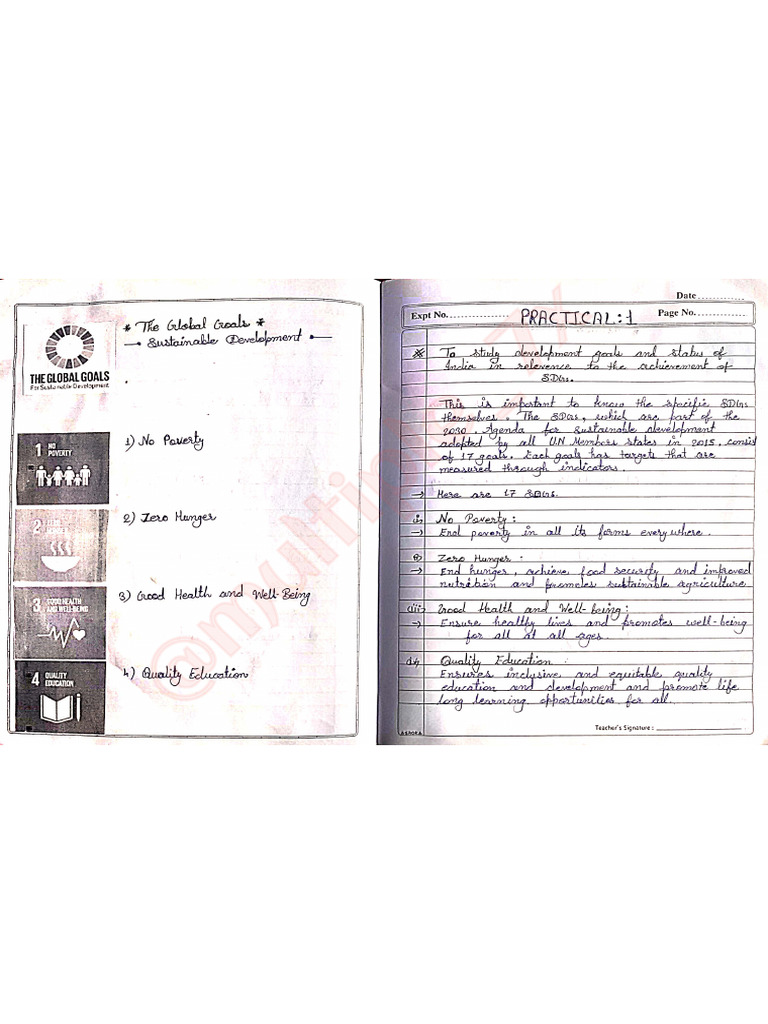 * The Global Goals *
Sustainable Development
THE GLOBAL GOALS
For Sustainable Development
1 NO
POVERTY
1) No Poverty
2 ZERO
HUNGER
2) Zero Hunger
3 GOOD HEALTH
AND WELL-BEING
3) Good Health and Well-Being
4 QUALITY
EDUCATION
4) Quality Education
Date
Expt No.
PRACTICAL: 1
Page No.
To study development goals and status of
India in relevence to the achievement of
SDGs.
This is important to know the specific SDGs
themselves. The SDGs, which are part of the
2030. Agenda for sustainable development
adopted by all U.N Members states in 2015, consist
of 17 goals. Each goals has targets that are
measured through indicators.
→ Here are 17 SDGs.
i) No Poverty:
→ End poverty in all its forms everywhere.
Zero Hunger:
→ End hunger, achieve food security and improved
nutrition and promotes sustainable agriculture.
(iii) Good Health and Well-being:
→ Ensure healthy lives and promotes well-being
for all at all ages.
Quality Education
Ensures inclusive and equitable quality
education and development and promote life
long learning opportunities for all.
Teacher's Signature: